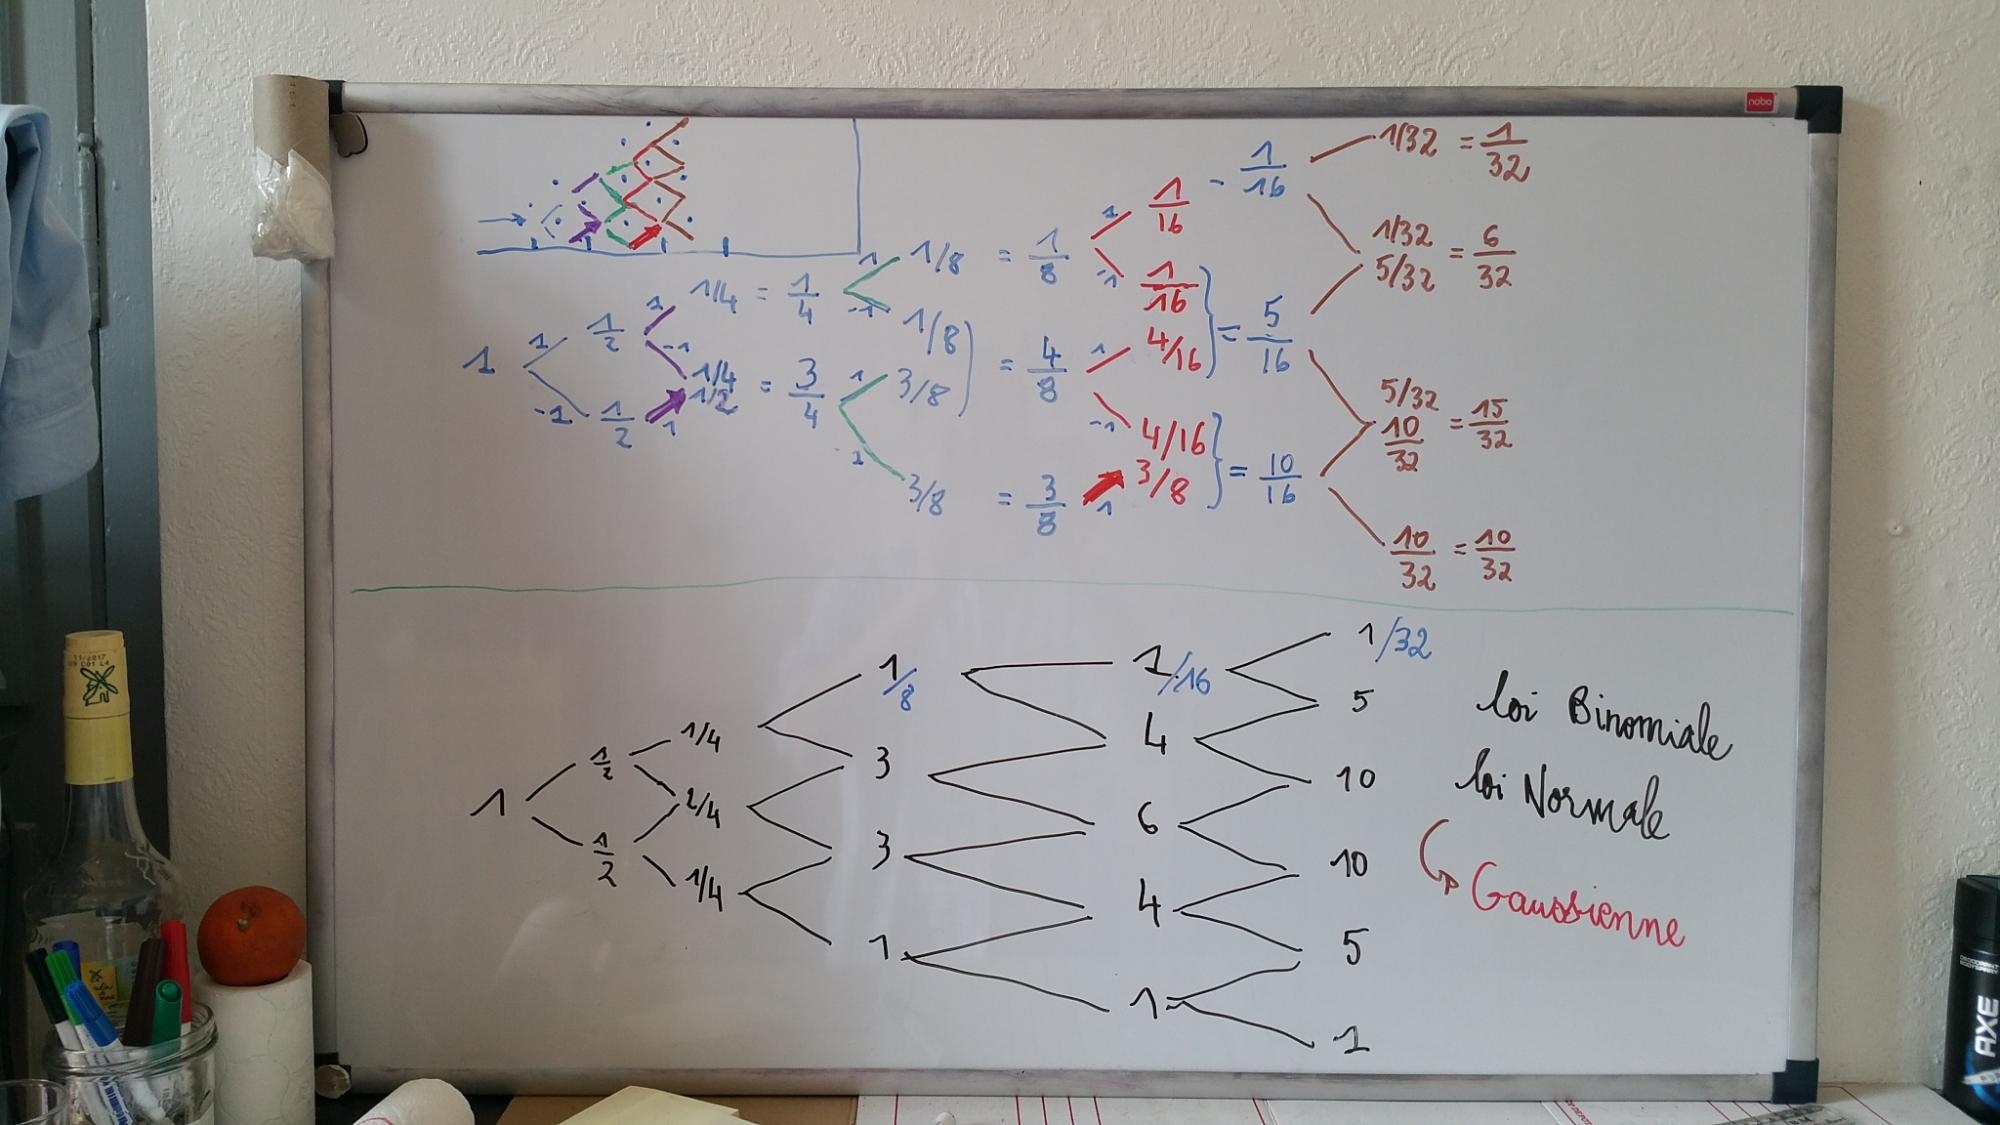 nobo
1/32 = 1/32
1 1/16 - 1/16
1/32
5/32 = 6/32
1 1/8 = 1/8
-1 1/16
1 1/4 = 1/4
-1 1/8
4/16 = 5/16
1 1 1/2
-1 1/4
1/2 = 3/4
1 3/8 = 4/8 1
-1 1/2 1
5/32
10/32 = 15/32
-1 4/16
3/8 = 10/16
1
3/8 = 3/8 1
10/32 = 10/32
1/32
1/8 1/16
5
loi Binomiale
1/2 1/4 3 4
10
loi Normale
1 2/4 6
1/2 3 10
Gaussienne
1/4 4
1 5
1
1
11/2017
09 C01 L4
DEODORANT
BODYSPRAY
AXE